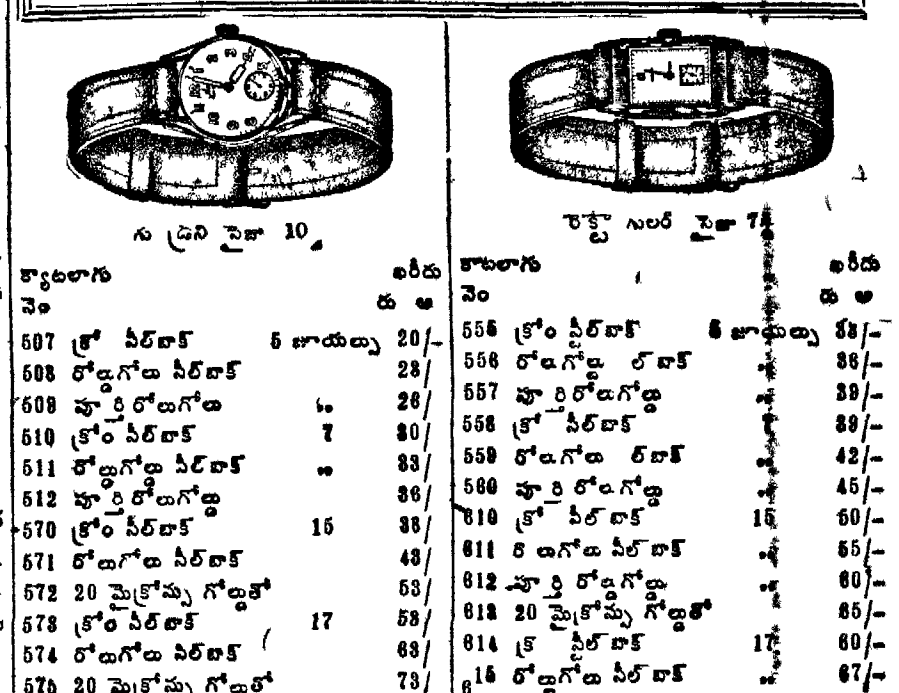 గు డ్రని సైజు 10
క్యాటలాగు ఖరీదు
నెం రు అ
507 క్రో సీల్‌బాక్ 5 జూయల్సు 20/-
508 రోల్డుగోలు సీల్‌బాక్ 23/
509 పూర్తి రోలుగోలు ,, 26/
510 క్రోం సీల్‌బాక్ 7 30/
511 రోల్డుగోల్డు సీల్‌బాక్ ,, 33/
512 పూర్తి రోలుగోల్డు 36/
570 క్రోం సీల్‌బాక్ 15 38/
571 రోలుగోలు సీల్‌బాక్ 43/
572 20 మైక్రోన్సు గోల్డుతో 53/
573 క్రోం సీల్‌బాక్ 17 58/
574 రోలుగోలు సీల్‌బాక్ 63/
575 20 మైక్రోన్సు గోల్డుతో 73/
రెక్టా గులర్ సైజు 7
కాటలాగు ఖరీదు
నెం రు అ
555 క్రోం స్టీల్‌బాక్ 5 జూయల్సు 33/-
556 రోలుగోల్డు ల్ బాక్ ,, 36/-
557 పూర్తి రోలుగోల్డు ,, 39/-
558 క్రో సీల్‌బాక్ 39/-
559 రోలుగోలు ల్ బాక్ ,, 42/-
560 పూర్తి రోలుగోల్డు ,, 45/-
610 క్రో సీల్ బాక్ 15 50/-
611 రొలుగోలు సీల్ బాక్ ,, 55/-
612 పూర్తి రోల్డుగోల్డు ,, 60/-
613 20 మైక్రోన్సు గోల్డుతో 65/-
614 క్ర స్టీల్ బాక్ 17 60/-
615 రోల్డుగోలు సీల్ బాక్ ,, 67/-